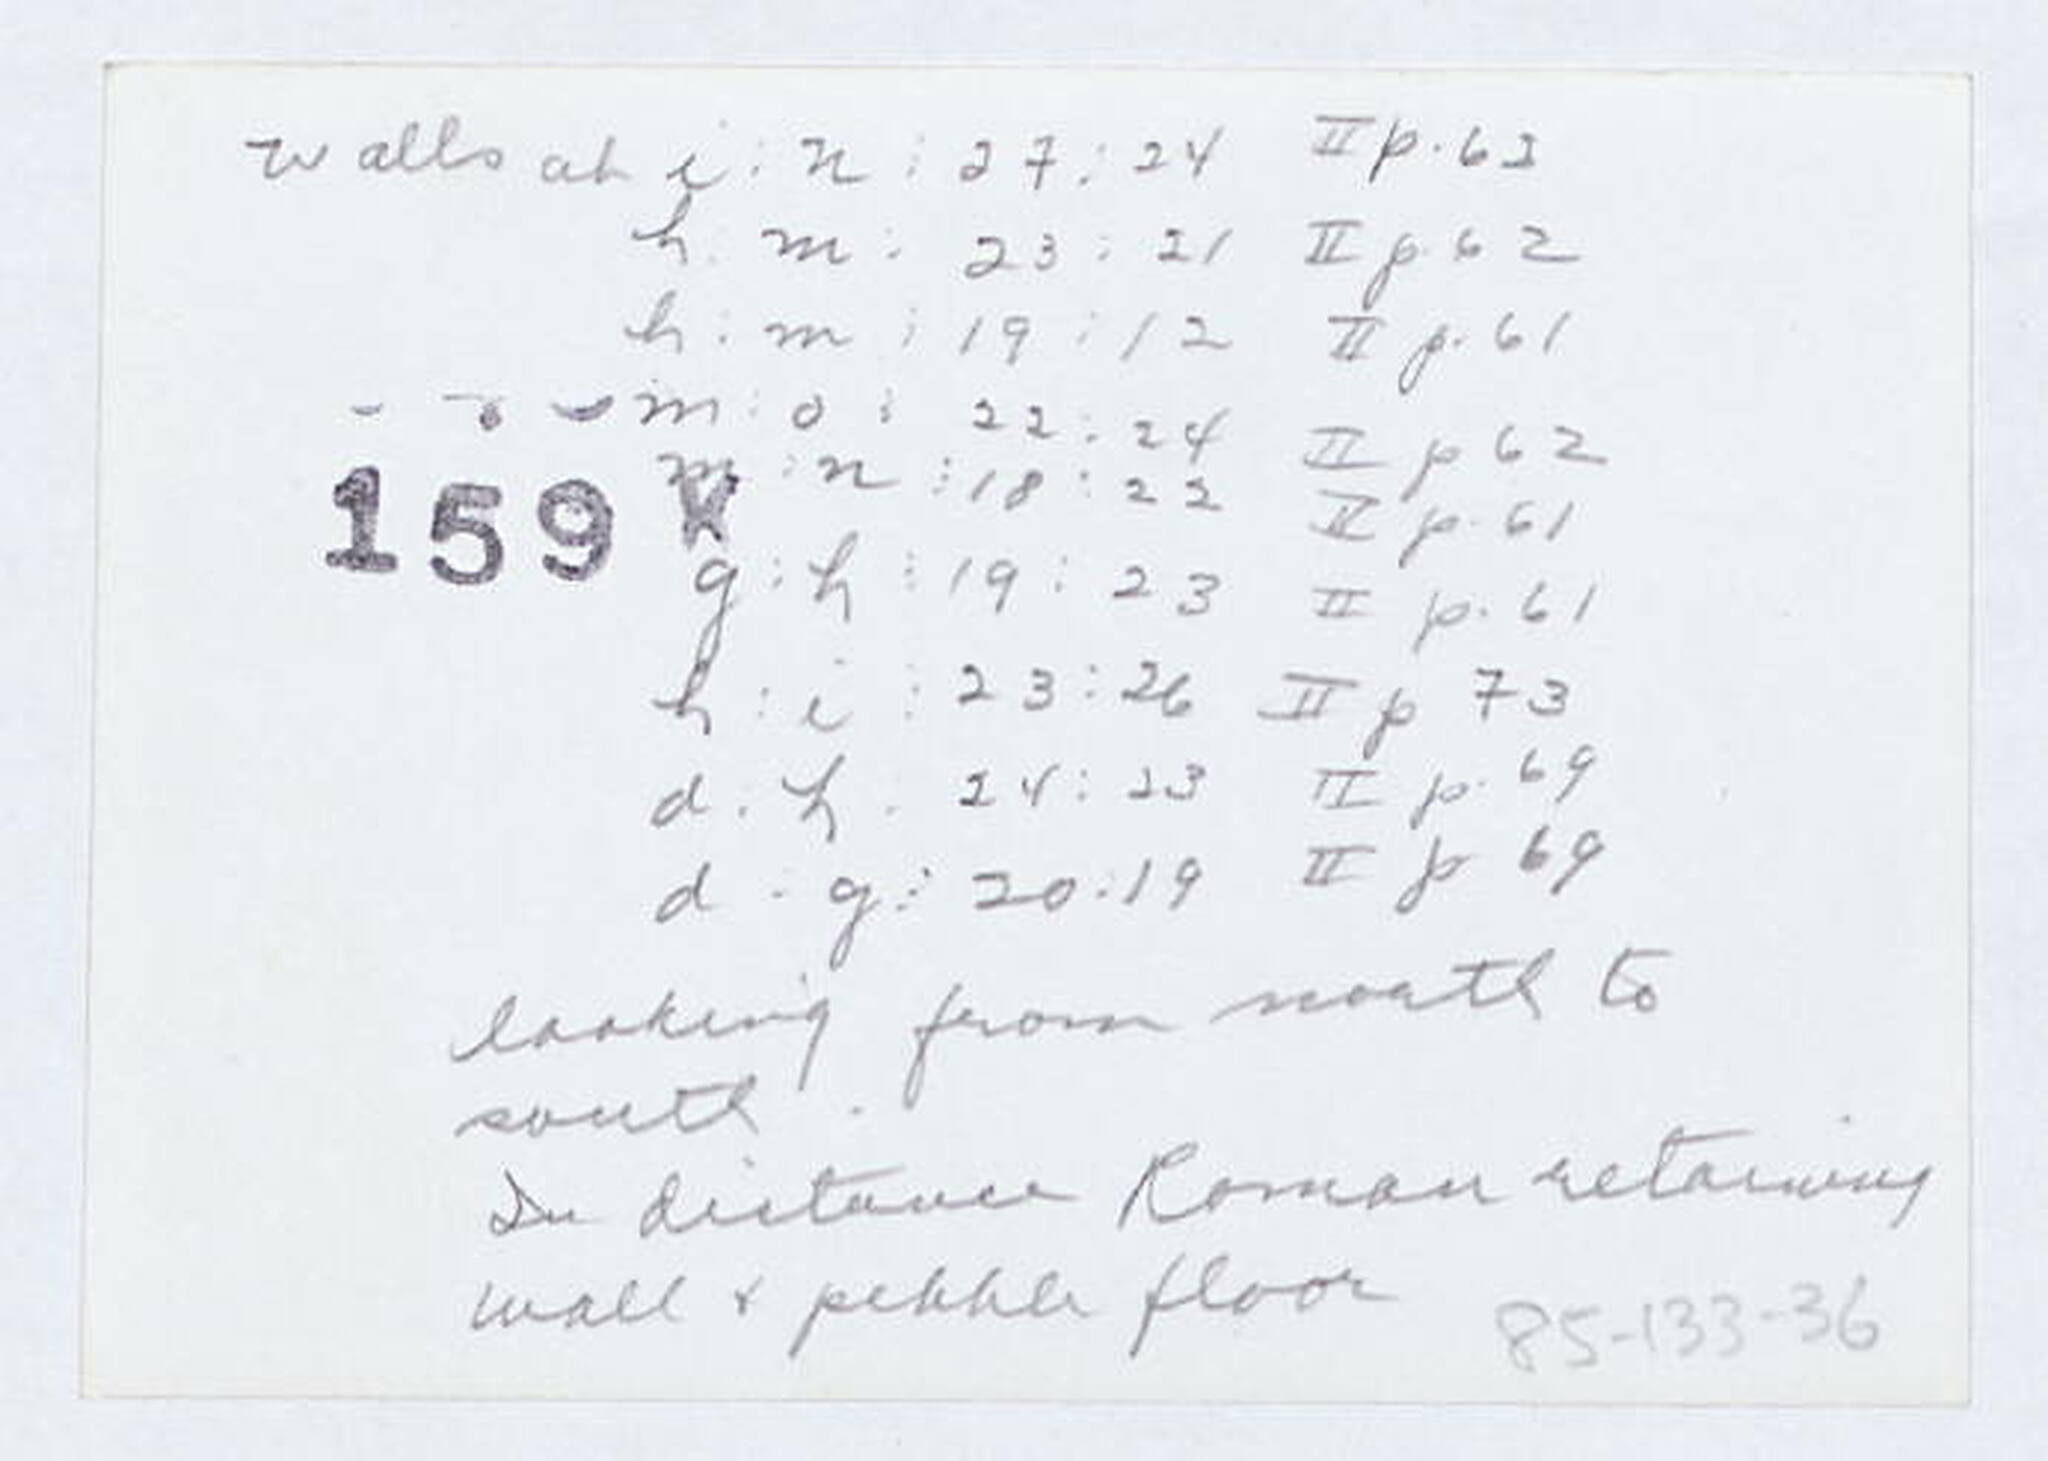 walls at i : n : 27 : 24 II p. 63
h : m : 23 : 21 II p. 62
h : m : 19 : 12 II p. 61
m : o : 22 : 24 II p 62
m : n : 18 : 22 II p. 61
159 K
g : h : 19 : 23 II p. 61
h : i : 23 : 26 II p 73
d . h . 24 : 23 II p. 69
d - g : 20 : 19 II p 69
looking from north to
south .
In distance Roman retaining
wall & pebble floor
85-133-36